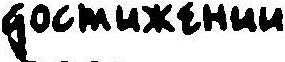 достижении